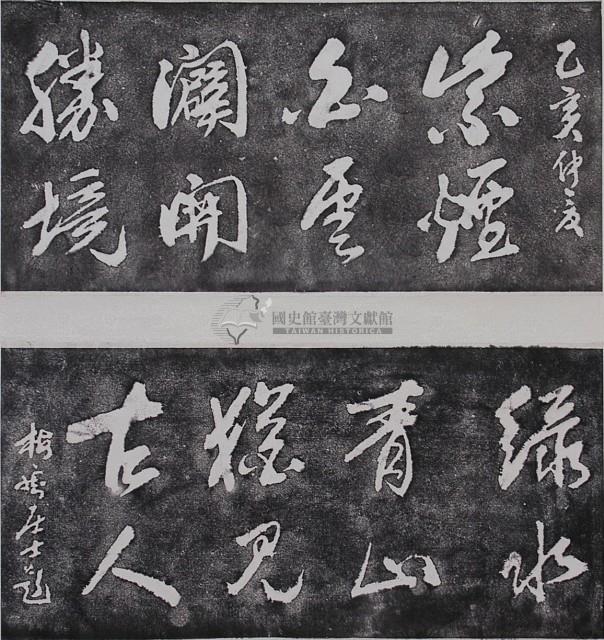 乙亥仲夏
紫煙
白雲
瀾開
勝境
國史館臺灣文獻館
TAIWAN HISTORICA
綠水
青山
猶見
古人
居士題